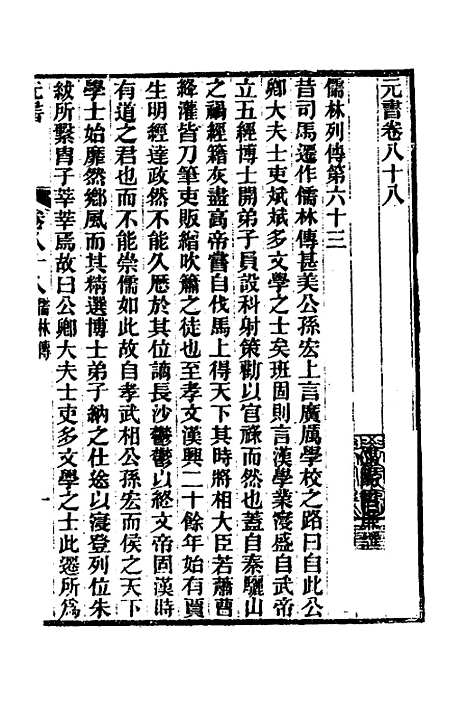 元書卷八十八
儒林列傳第六十三
昔司馬遷作儒林傳甚美公孫宏上言廣厲學校之路曰自此公
卿大夫士吏斌斌多文學之士矣班固則言漢學業寖盛自武帝
立五經博士開弟子員設科射策勸以官祿而然也蓋自秦驪山
之禍經籍灰盡高帝嘗自伐馬上得天下其時將相大臣若蕭曹
絳灌皆刀筆吏販繒吹簫之徒也至孝文漢興二十餘年始有賈
生明經達政然不能久歷於其位謫長沙鬱鬱以終文帝固漢時
有道之君也而不能崇儒如此故自孝武相公孫宏而侯之天下
學士始靡然鄉風而其精選博士弟子納之仕途以寖登列位朱
紱所繫冑子莘莘焉故曰公卿大夫士吏多文學之士此遷所為
元書
卷八十八儒林傳
一